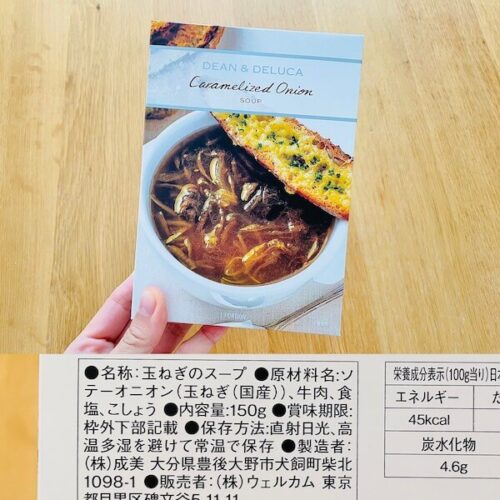 DEAN & DELUCA
Caramelized Onion
SOUP
1 PORTION
●名称：玉ねぎのスープ ●原材料名：ソ
テーオニオン（玉ねぎ（国産））、牛肉、食
塩、こしょう ●内容量：150g ●賞味期限：
枠外下部記載 ●保存方法：直射日光、高
温多湿を避けて常温で保存 ●製造者：
（株）成美 大分県豊後大野市犬飼町柴北
1098-1 ●販売者：（株）ウェルカム 東京
都目黒区碑文谷5-11-11
栄養成分表示（100g当り）日本
エネルギー
た
45kcal
炭水化物
4.6g